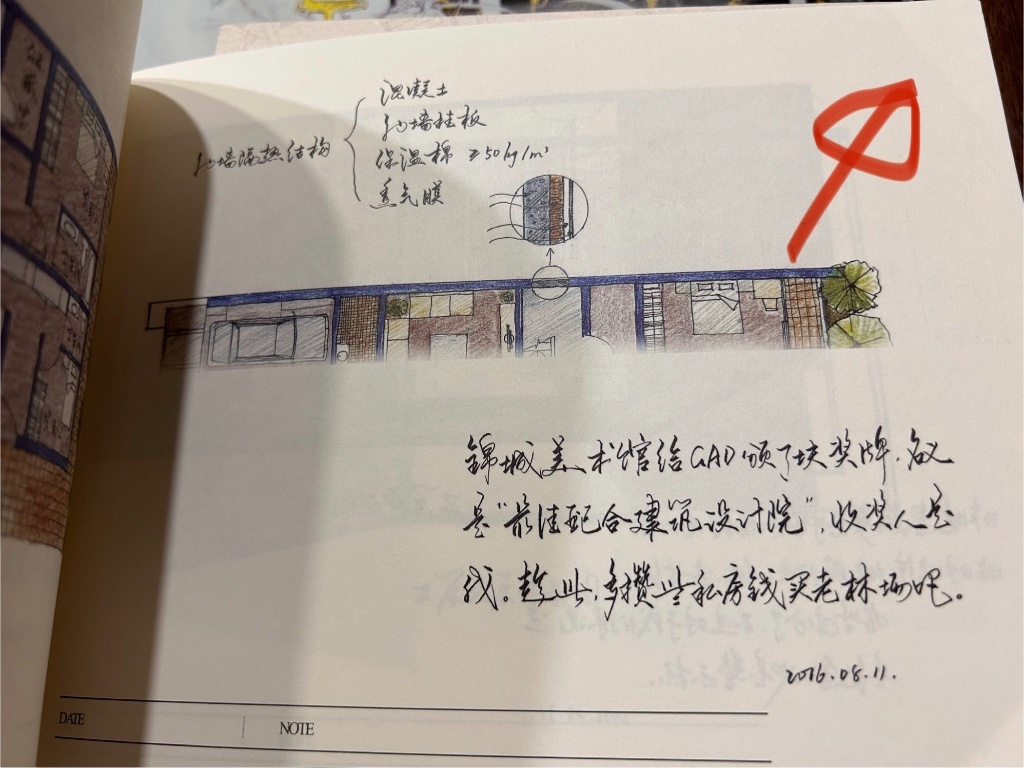 混凝土
外墙挂板
外墙隔热结构
保温棉 ≥50kg/m³
透气膜
锦城美术馆给GAD颁了块奖牌，名义
是“最佳配合建筑设计院”，收奖人是
我。趁此，多攒些私房钱买老林场吧。
2016.08.11.
DATE
NOTE